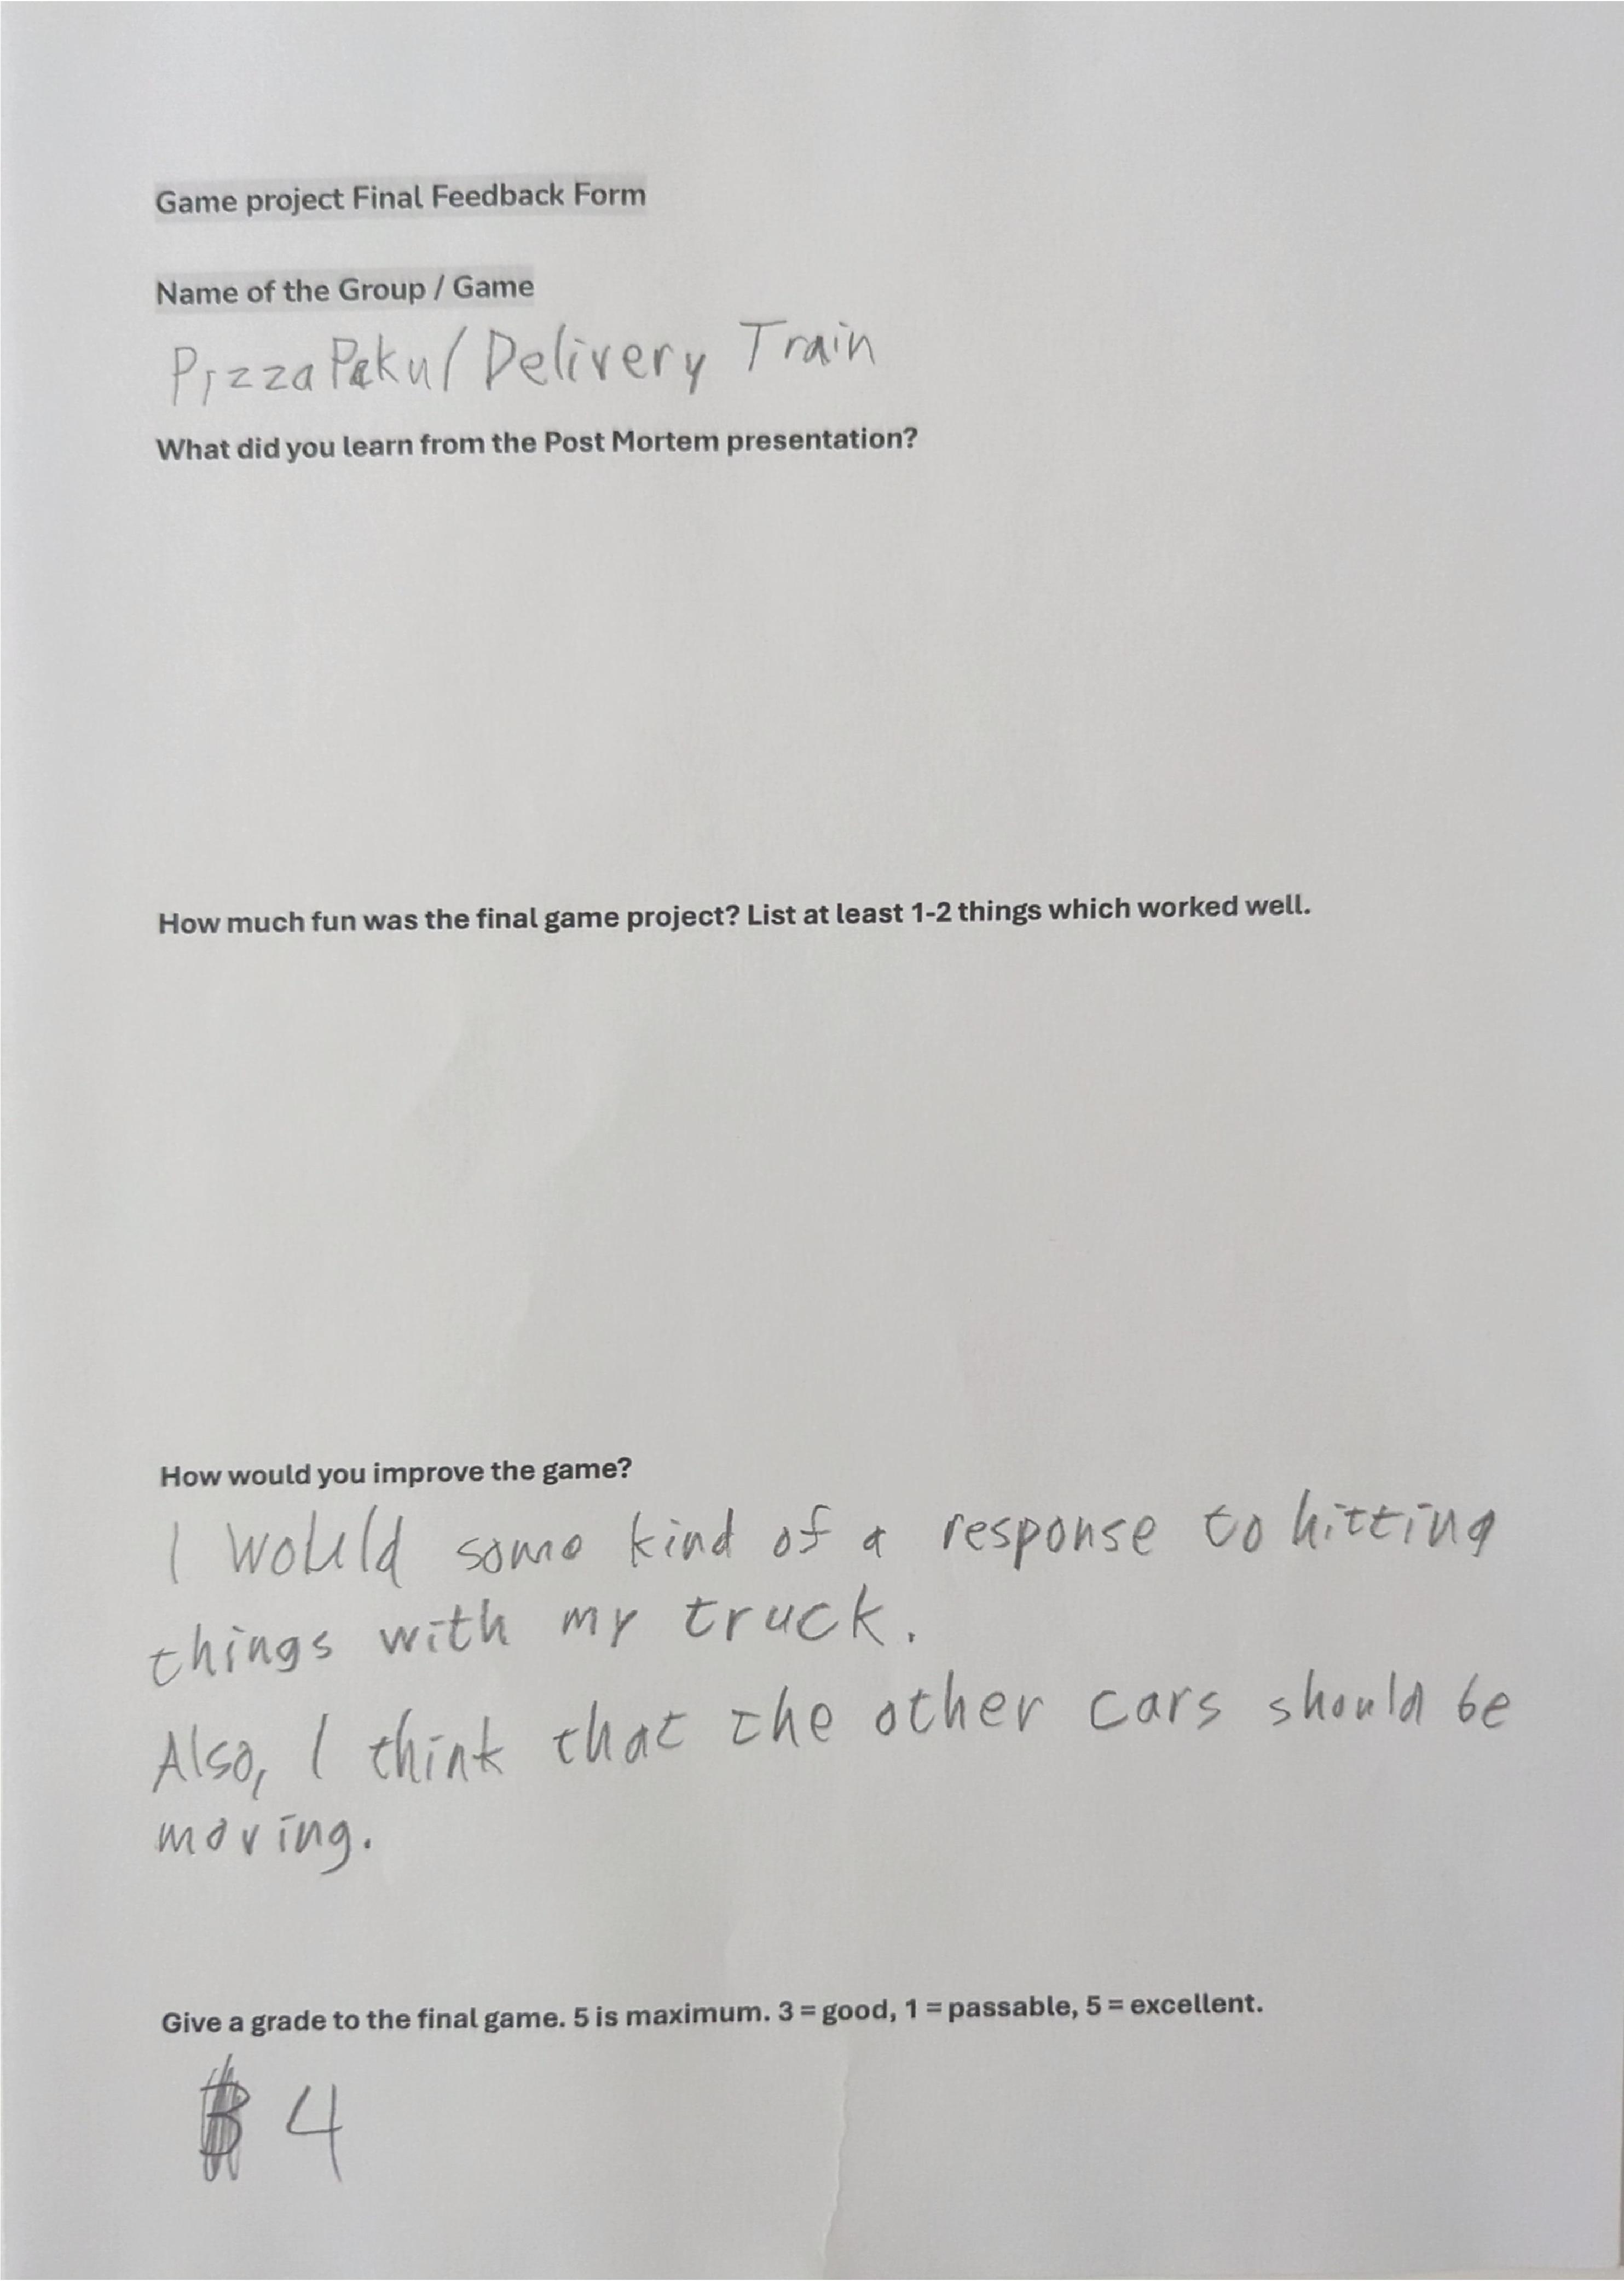 Game project Final Feedback Form
Name of the Group / Game
PizzaPeku/Delivery Train
What did you learn from the Post Mortem presentation?
How much fun was the final game project? List at least 1-2 things which worked well.
How would you improve the game?
I would some kind of a response to hitting
things with my truck.
Also, I think that the other cars should be
moving.
Give a grade to the final game. 5 is maximum. 3 = good, 1 = passable, 5 = excellent.
4